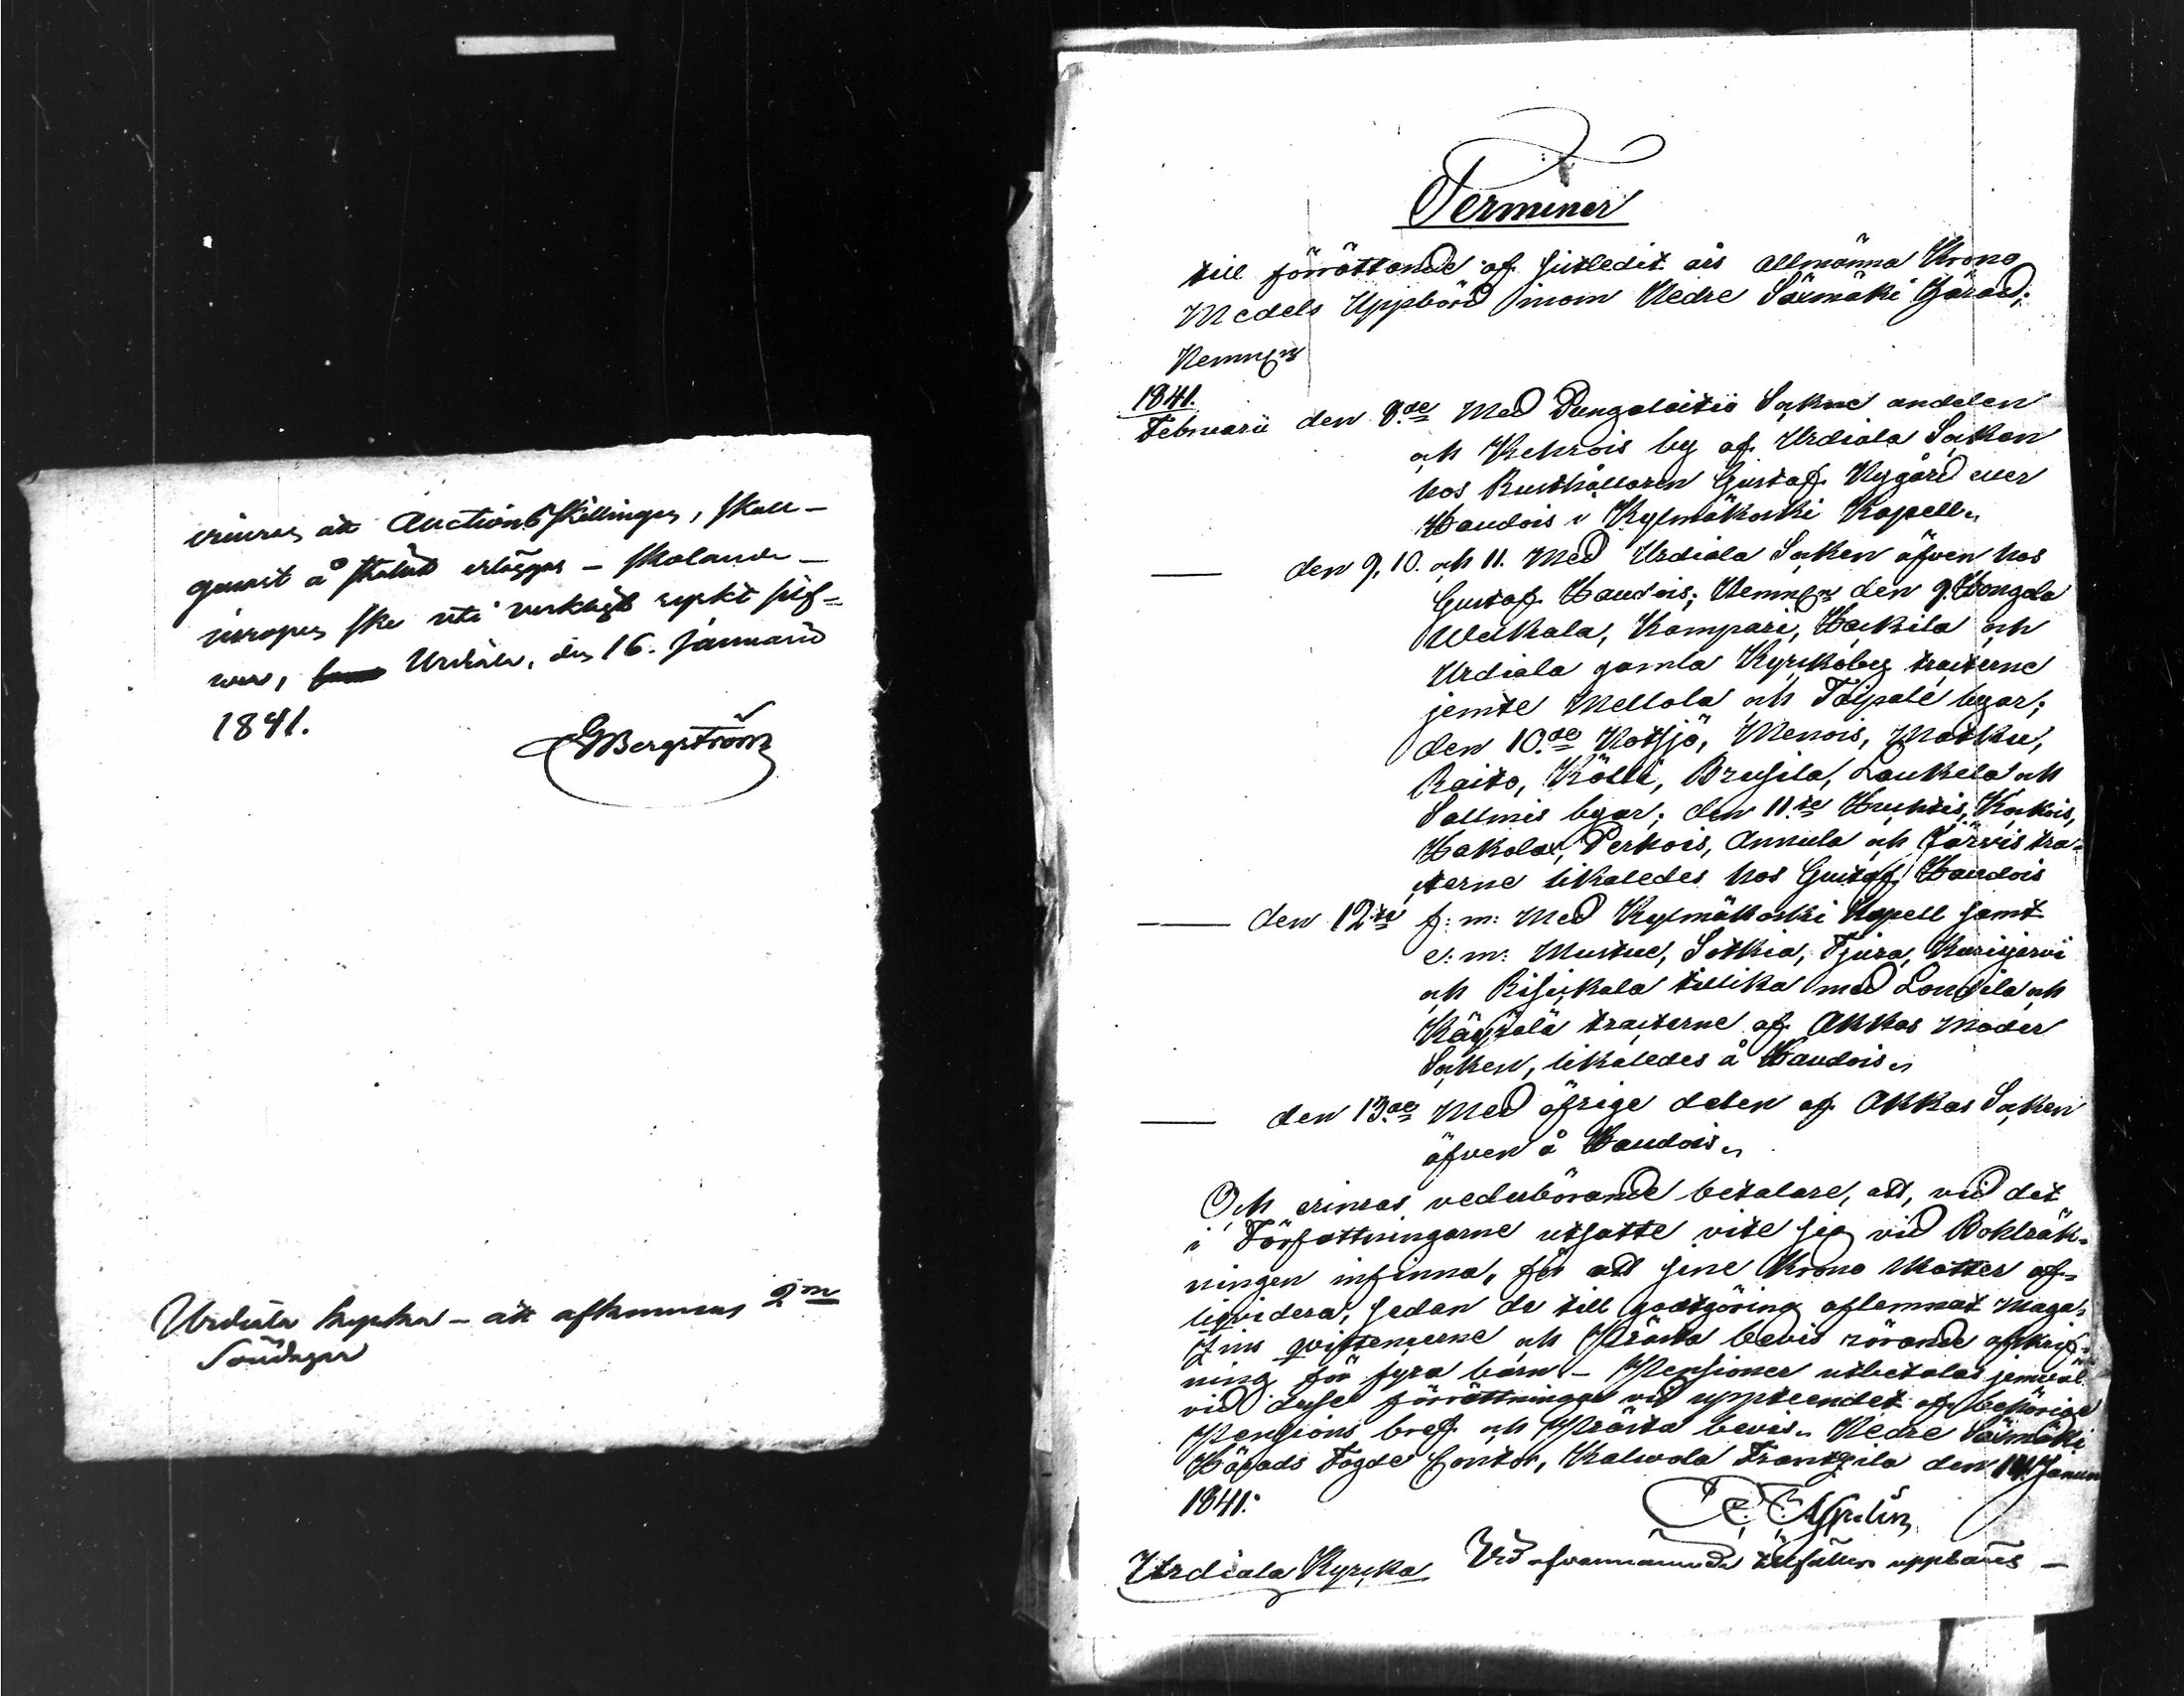 erinras att Auctions skillingen, skall
genast å stället erläggas – skolande –
inropen ske uti verkligt ryskt silf-
wer, Urdiala, den 16. Januarii
1841.
G Bergström
Urdiala kyrka – att afkunnas 2ne
Söndagar
Terminer
till förrättande af sistledit års allmänna Krono
Medels Uppbörd inom Nedre Säxmäki Härad;
Nemnln
1841.
Februarii den 8de Med Pungalaitio Sokne andelen
och Kehrois by af Urdiala Socken
hos Rusthållaren Gustaf Nygård eller
Haudois i Kylmäkoski Kapell.
— den 9, 10. och 11. Med Urdiala Socken äfven hos
Gustaf Haudois; Nemnln den 9. Hongola
Weckala, Kampari, Hackila och
Urdiala gamla Kyrkoby tracterne
jemte Mellola och Taipale byar;
den 10de Notsjö, Menois, Matku,
Raito, Kölli, Brusila, Laukela och
Sallmis byar; den 11te Huhtis, Kakois,
Hakolax, Perkois, Annula och Järvis tra-
cterne likaledes hos Gustaf Haudois
— den 12te f: m: Med Kylmäkoski Kapell samt
e: m: Mustue, Sotkia, Tjura, Kurisjervi
och Risickala tillika med Lonsila och
Käyrälä tracterne af Akkas Moder
Socken, likaledes å Haudois.
— den 13de Med öfrige delen af Akkas Socken
äfven å Haudois.
Och erinras vederbörande betalare, att, vid det
i Författningarne utsatte vite sig vid Boklräk-
ningen infinna, för att sine Krono Utskatter af-
liqvidera, sedan de till godtgöring aflemnat Maga-
zins qvittencerne och Prästa bevis rörande afskrif-
ning för fyra barn – Pensioner utbetalas jemväl
vid desse förrättningar vid uppteendet af behörige
Pensions bref och Prästa bevis. Nedre Säxmäki
Härads Fogde Contor, Kalvola Frantzila den 14. Januarii
1841.
Urdiala Kyrka Vid ofvannämnda tillfällen uppbäres –